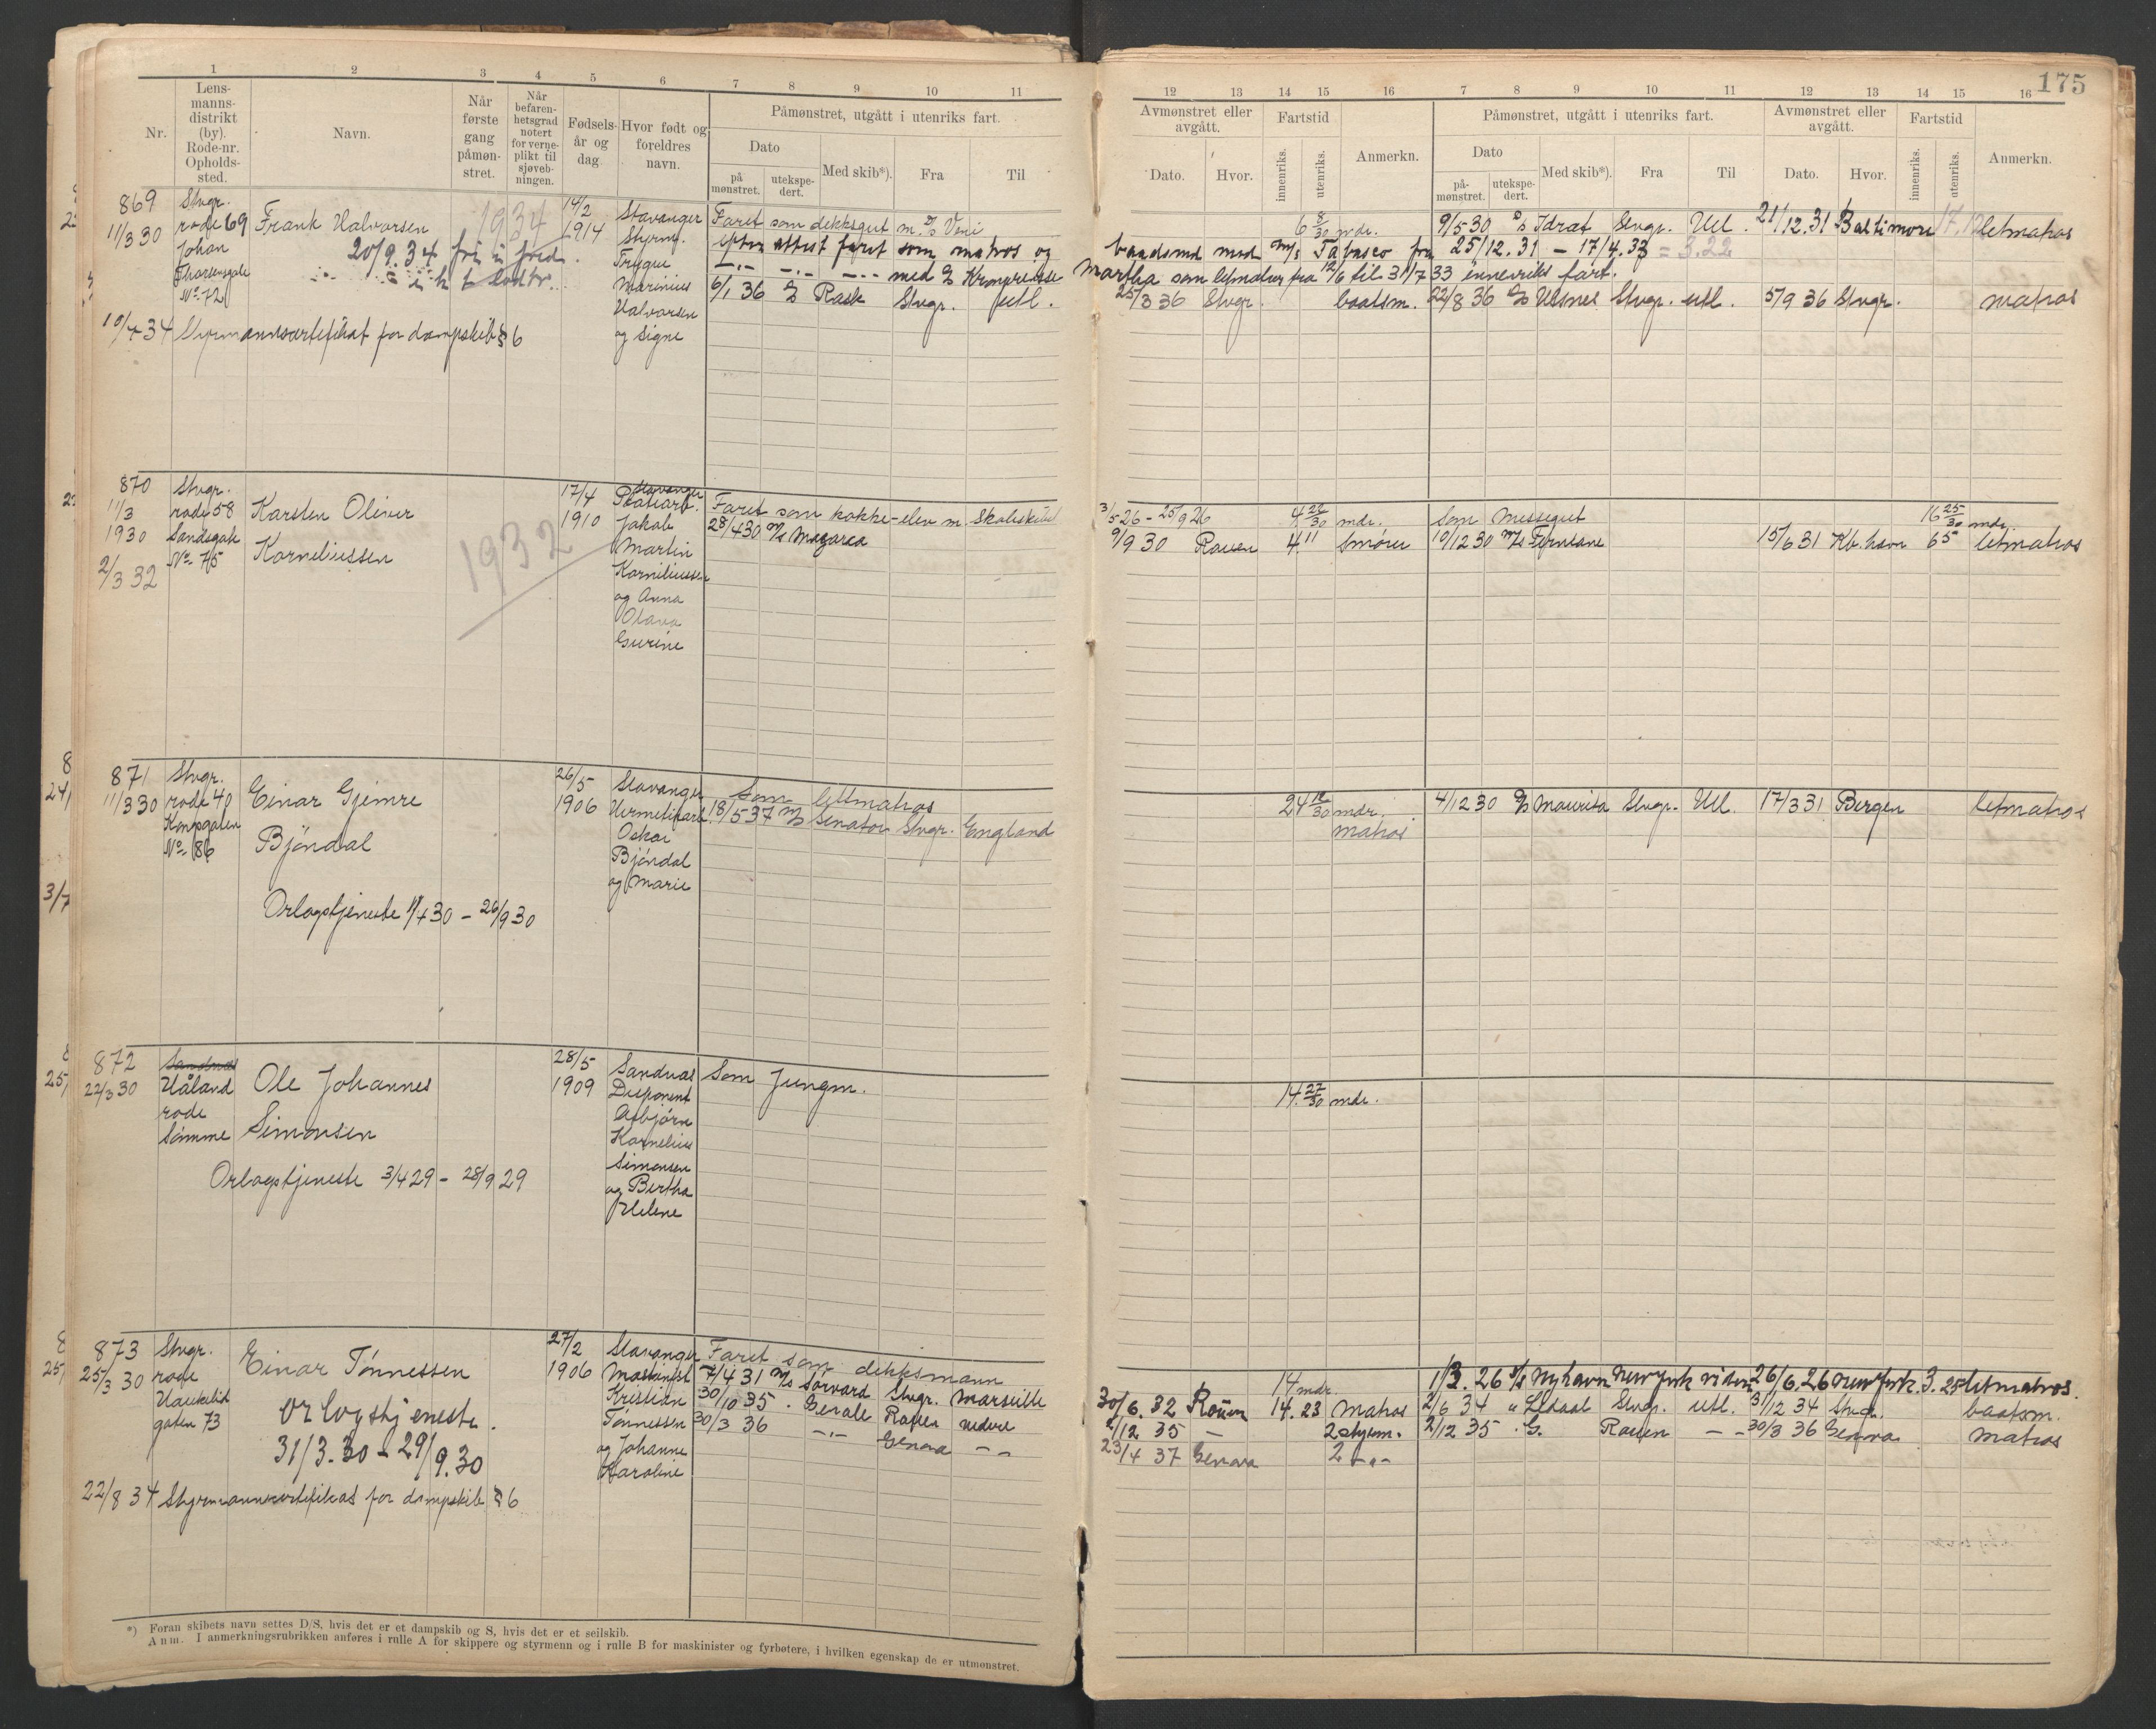 175
1 2 3 4 5 6 7 8 9 10 11
Nr.
Lens-
manns-
distrikt
(by).
Rode-nr.
Opholds-
sted.
Navn.
Når
første
gang
påmøn-
stret.
Når
befaren-
hetsgrad
notert
for verne-
plikt til
sjøveb-
ningen.
Fødsels-
år og
dag
Hvor født og
foreldres
navn.
Påmønstret, utgått i utenriks fart.
Dato
på
mønstret.
utekspe-
dert.
Med skib*).
Fra
Til
12 13 14 15 16 7 8 9 10 11 12 13 14 15 16
Avmønstret eller
avgått.
Dato.
Hvor.
Fartstid
innenriks.
utenriks.
Anmerkn.
Påmønstret, utgått i utenriks fart.
Dato
på-
mønstret.
utekspe-
dert.
Med skib*).
Fra
Til
Avmønstret eller
avgått.
Dato.
Hvor.
Fartstid
innenriks.
utenriks.
Anmerkn.
869
11/3 30
Stvgr.
rode 69
Johan
No. 72
Frank Halvorsen
1934
20/9.34
14/2
1914
Stavanger
Styrm.
Trygve
Marinius
Halvorsen
og Signe
Faret som dekksgut m. D/S
efter attest faret som matros og
—"— —"— —"— med D/S Kronprinsesse
6/1 36 D/S Rask Stvgr. Utl.
10/4 34 Styrmannsertifikat for dampskib § 6
6 8/30 mdr. 9/5 30 D/S Idræt Stvgr. Utl. 21/12.31 Baltimore 17.12 letmatros
baadsmd med M/S Tabasco fra 25/12.31 – 17/4.33 = 3.22
Märtha som letmatros fra 12/6 til 31/7 33 innenriks fart.
25/3 36 Stvgr. baatsm. 22/8 36 D/S Utsnes Stvgr. utl. 5/9 36 Stvgr. matros
870
11/3
1930
2/3 32
Stvgr.
rode 58
Sandsgate
No. 75
Karsten Oliver
Korneliussen
1932
17/4
1910
Stavanger
Jakob
Martin
Korneliussen
og Anna
Olava
Gurine
Faret som kokke-elev m. Skoleskibet
28/4 30 M/S
3/5 26 – 25/9 26 4 26/30 mdr. Som Messegut 16 25/30 mdr.
9/9 30 Rouen 4.11 smører 10/12 30 M/S Fernlane 15/6 31 Kb.havn 6 5 letmatros
871
11/3 30
Stvgr.
rode 40
Kongsgaten
No. 86
Einar Gjemre
Bjöndal
Orlogstjeneste 11/4 30 – 26/9 30
26/5
1906
Stavanger
Hermetikarb.
Oskar
Bjöndal
og Marie
Som letmatros
18/5 37 M/S Senator Stvgr. England
24 12/30 mdr. 4/12 30 D/S Maurita Stvgr. Utl. 17/3 31 Bergen letmatros
matros
872
22/3 30
Sandnes
Håland
rode
Sömme
Ole Johannes
Simonsen
Orlogstjeneste 3/4 29 – 28/9 29
28/5
1909
Sandnes
Disponent
Asbjörn
Kornelius
Simonsen
og Bertha
Helene
Som Jungm.
14 27/30 mdr.
873
25/3 30
Stvgr.
rode
Haukelid
gaten 73
Einar Tönnessen
orlogstjeneste.
31/3.30 – 29/9.30
22/8 34 Styrmannsertifikat for dampskib § 6
27/2
1906
Stavanger
Maskinist
Kristian
Tønnessen
og Johanne
Karoline
Faret som dekksmann
7/4 31 M/S Sörvard Stvgr. Marseille
30/10 35 " Gerale Rouen videre
30/3 36 —"— Genova — —
14 mdr. 1/3.26 D/S Nyhavn New York videre 26/6.26 New York 3.25 letmatros.
30/6.32 Rouen 14.23 Matros 2/6 34 " Stvgr. utl. 31/12 34 Stvgr. baatsm.
2/12 35 — 2 styrm. 2/12 35 " G. Rouen — — 30/3 36 Genova matros
23/4 37 Genova 2 —"—
*) Foran skibets navn settes D/S, hvis det er et dampskib og S, hvis det er et seilskib.
Anm. I anmerkningsrubrikken anføres i rulle A for skippere og styrmenn og i rulle B for maskinister og fyrbøtere, i hvilken egenskap de er utmønstret.